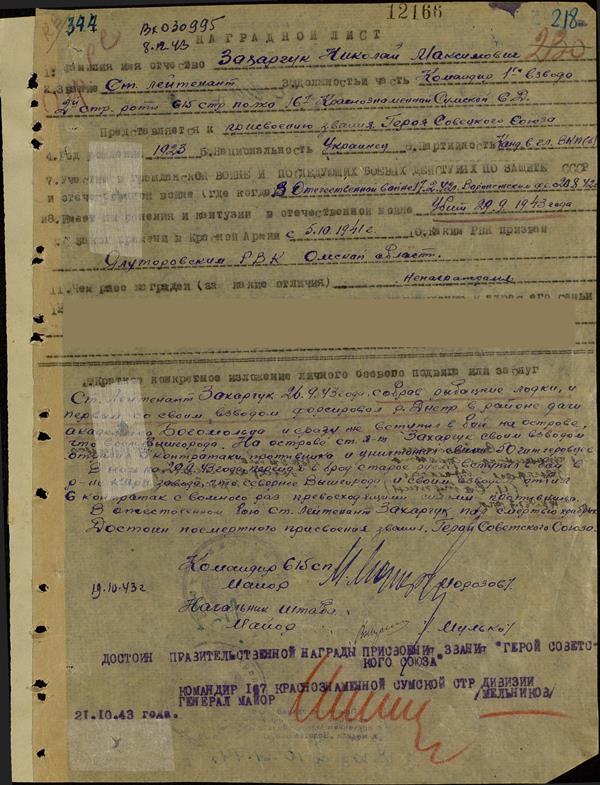 344
Вх 030995
8.12.43
12166
218
НАГРАДНОЙ ЛИСТ
1. Фамилия имя отчество Захарчук Николай Максимович
2. Звание Ст. лейтенант 3. Должность и часть Командир 1го взвода
2й стр. роты 615 стр. полка 167 Краснознаменной Сумской С.Д.
Представляется к присвоению звания Героя Советского Союза
4. Год рождения 1923 5. Национальность Украинец 6. Партийность Канд. в чл. ВКП(б)
7. Участие в гражданской войне и последующих боевых действиях по защите СССР
и отечественной войне (где когда) В Отечественной войне
8. Имеет ли ранения и контузии в отечественной войне Убит 29.9.1943 года
в Красной Армии с 5.10.1941г. Каким РВК призван
Ялуторовским РВК Омской область.
11. Чем ранее награжден (за какие отличия) ненагражден
Краткое конкретное изложение личного боевого подвига или заслуг
Ст. Лейтенант Захарчук 26.9.43 года, собрав рыбацкие лодки, и
первый со своим взводом форсировал р. Днепр в районе дачи
академика Богомольца и сразу же вступил в бой на острове,
что Вышгорода. На острове ст. л-т Захарчук своим взводом
контратаки противника и уничтожил свыше 50 гитлеровцев
29.9.43 года, перейдя в брод старое русло вступил в бой в
завода, что севернее Вышгорода и своим взводом отбил
6 контратак с восемь раз превосходящими силами противника.
В ожесточенном бою ст. Лейтенант Захарчук пал смертью храбрых.
Достоин посмертного присвоения звания, Герой Советского Союза.
Командир 615 сп
19.10.43г Майор /Морозов/.
Начальник штаба.
Майор /Мулько/
ДОСТОИН ПРАВИТЕЛЬСТВЕННОЙ НАГРАДЫ ПРИСВОЕНИЯ ЗВАНИЯ "ГЕРОЙ СОВЕТС-
КОГО СОЮЗА"
КОМАНДИР 167 КРАСНОЗНАМЕННОЙ СУМСКОЙ СТР ДИВИЗИИ
ГЕНЕРАЛ МАЙОР /МЕЛЬНИКОВ/
21.10.43 года.